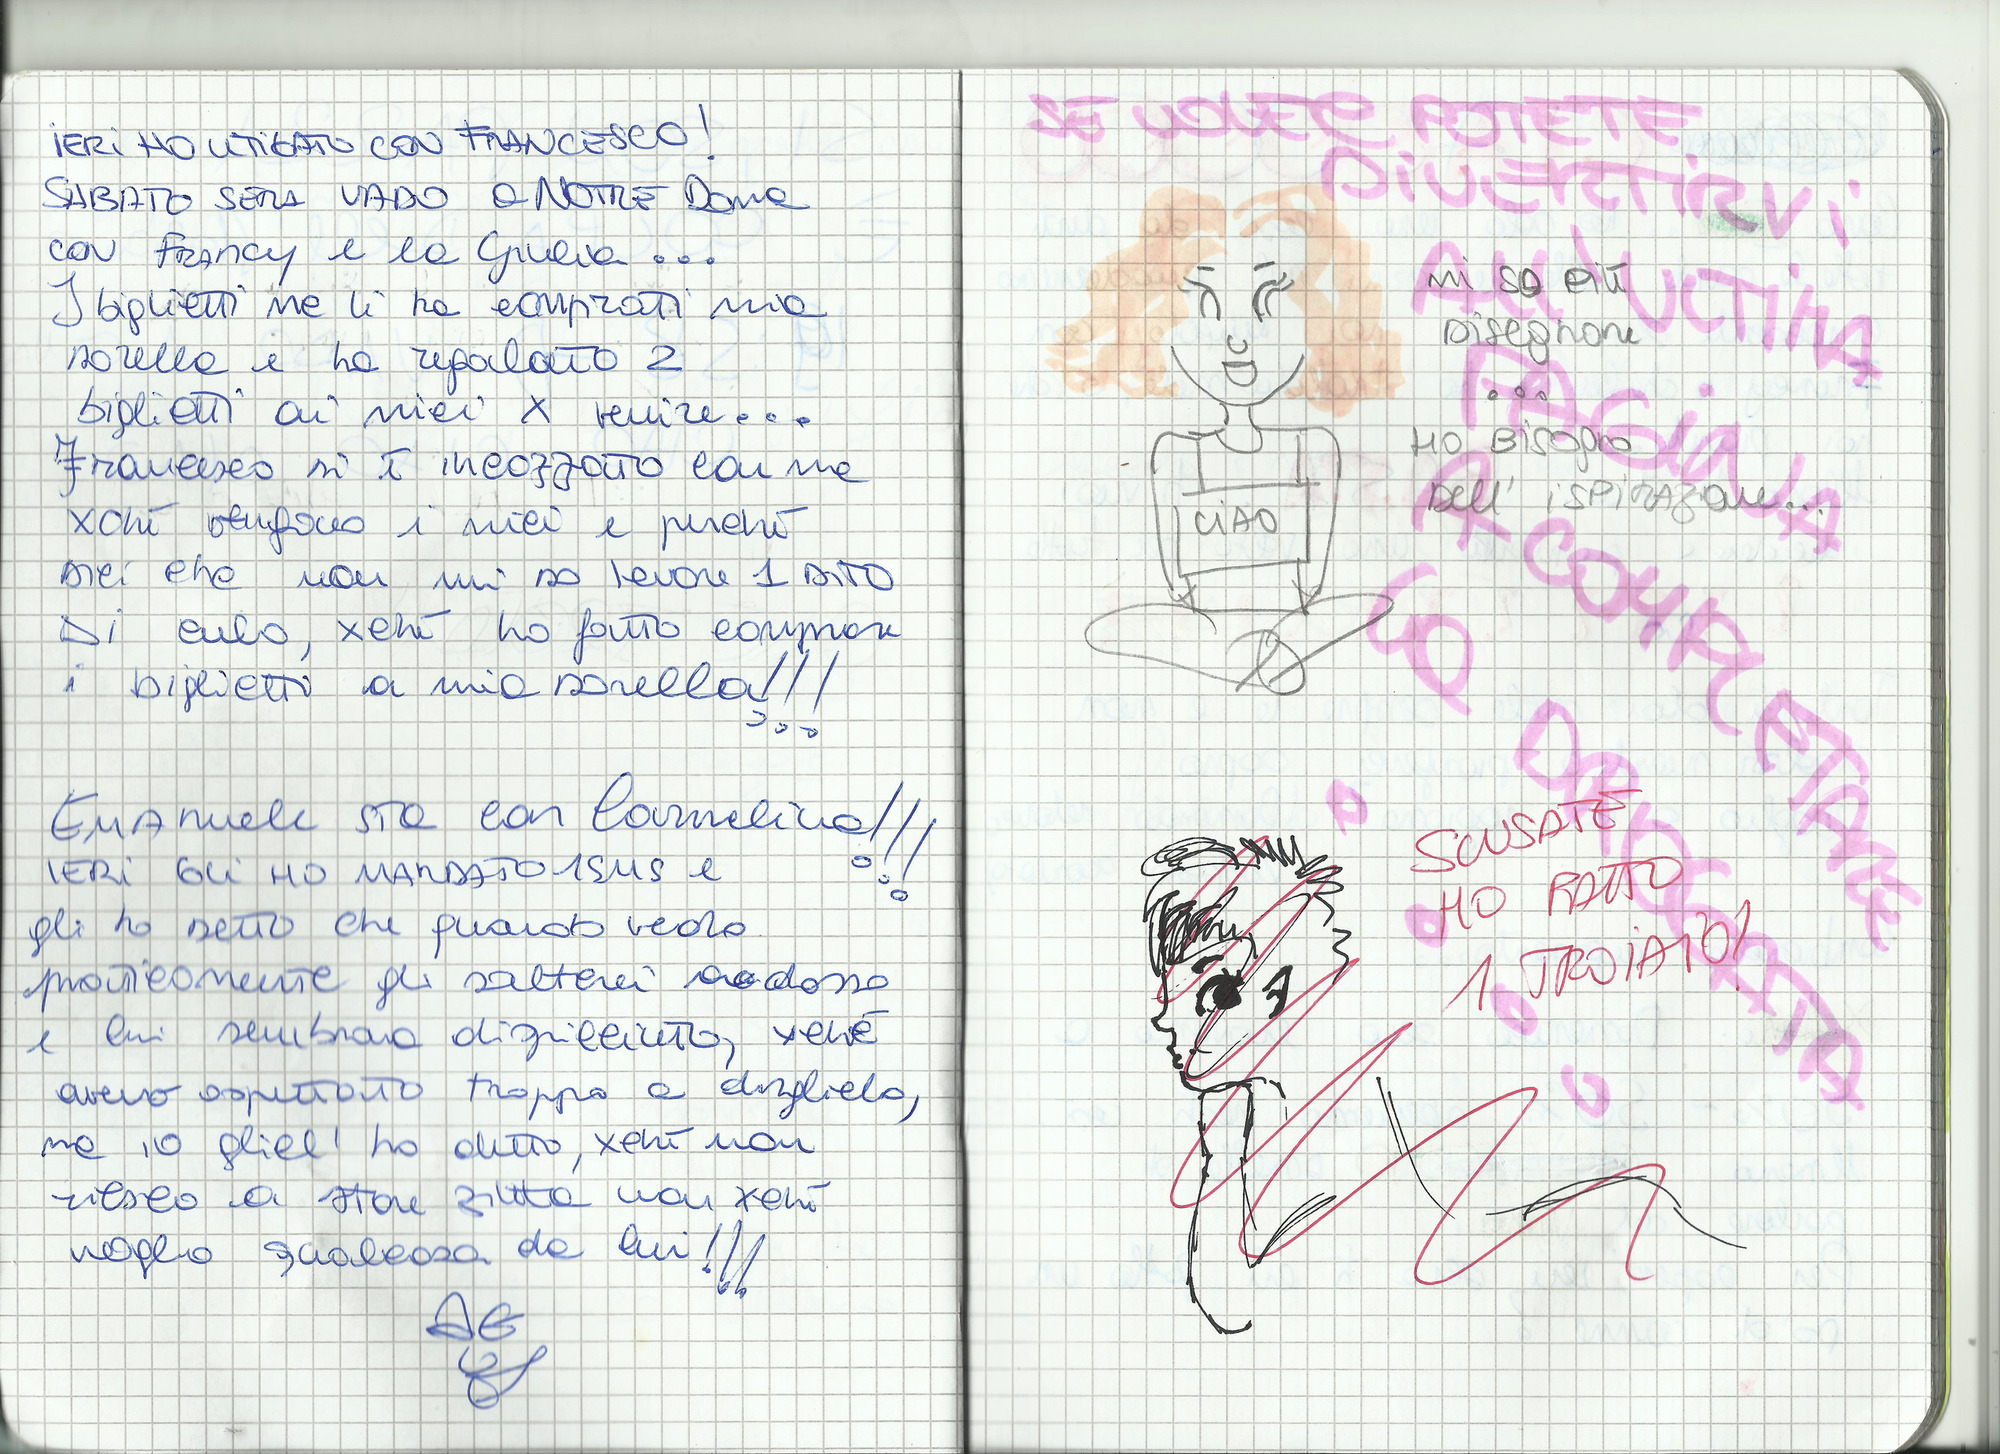 IERI HO LITIGATO CON FRANCESCO!
SABATO SERA VADO a NOTRE Dame
con Francy e la Giulia...
I biglietti me li ha comprati mia
sorella e ha regalato 2
biglietti ai miei x venire...
Francesco si è incazzato con me
xchè vengono i miei e perchè
dici che non mi so levare 1 DITO
DI culo, xchè ho fatto comprare
i biglietti a mia sorella!!!
Emanuele sta con Carmelina!!!
IERI GLI HO MANDATO 1 SMS e
gli ho detto che quando vedo
praticamente gli salterei addosso
e lui sembrava dispiaciuto, xchè
avevo aspettato troppo a dirglielo,
ma io gliel' ho detto, xchè non
riesco a stare zitta non xchè
voglio qualcosa da lui!!!
SE VOLETE POTETE
DIVERTIRVI
ALL'ULTIMA
PAGINA
A COMPLETARE
LA DROGATA
mi so più
disegnare
...
HO BISOGNO
DELL' ISPIRAZIONE...
CIAO
SCUSATE
HO FATTO
1 TROIATO!